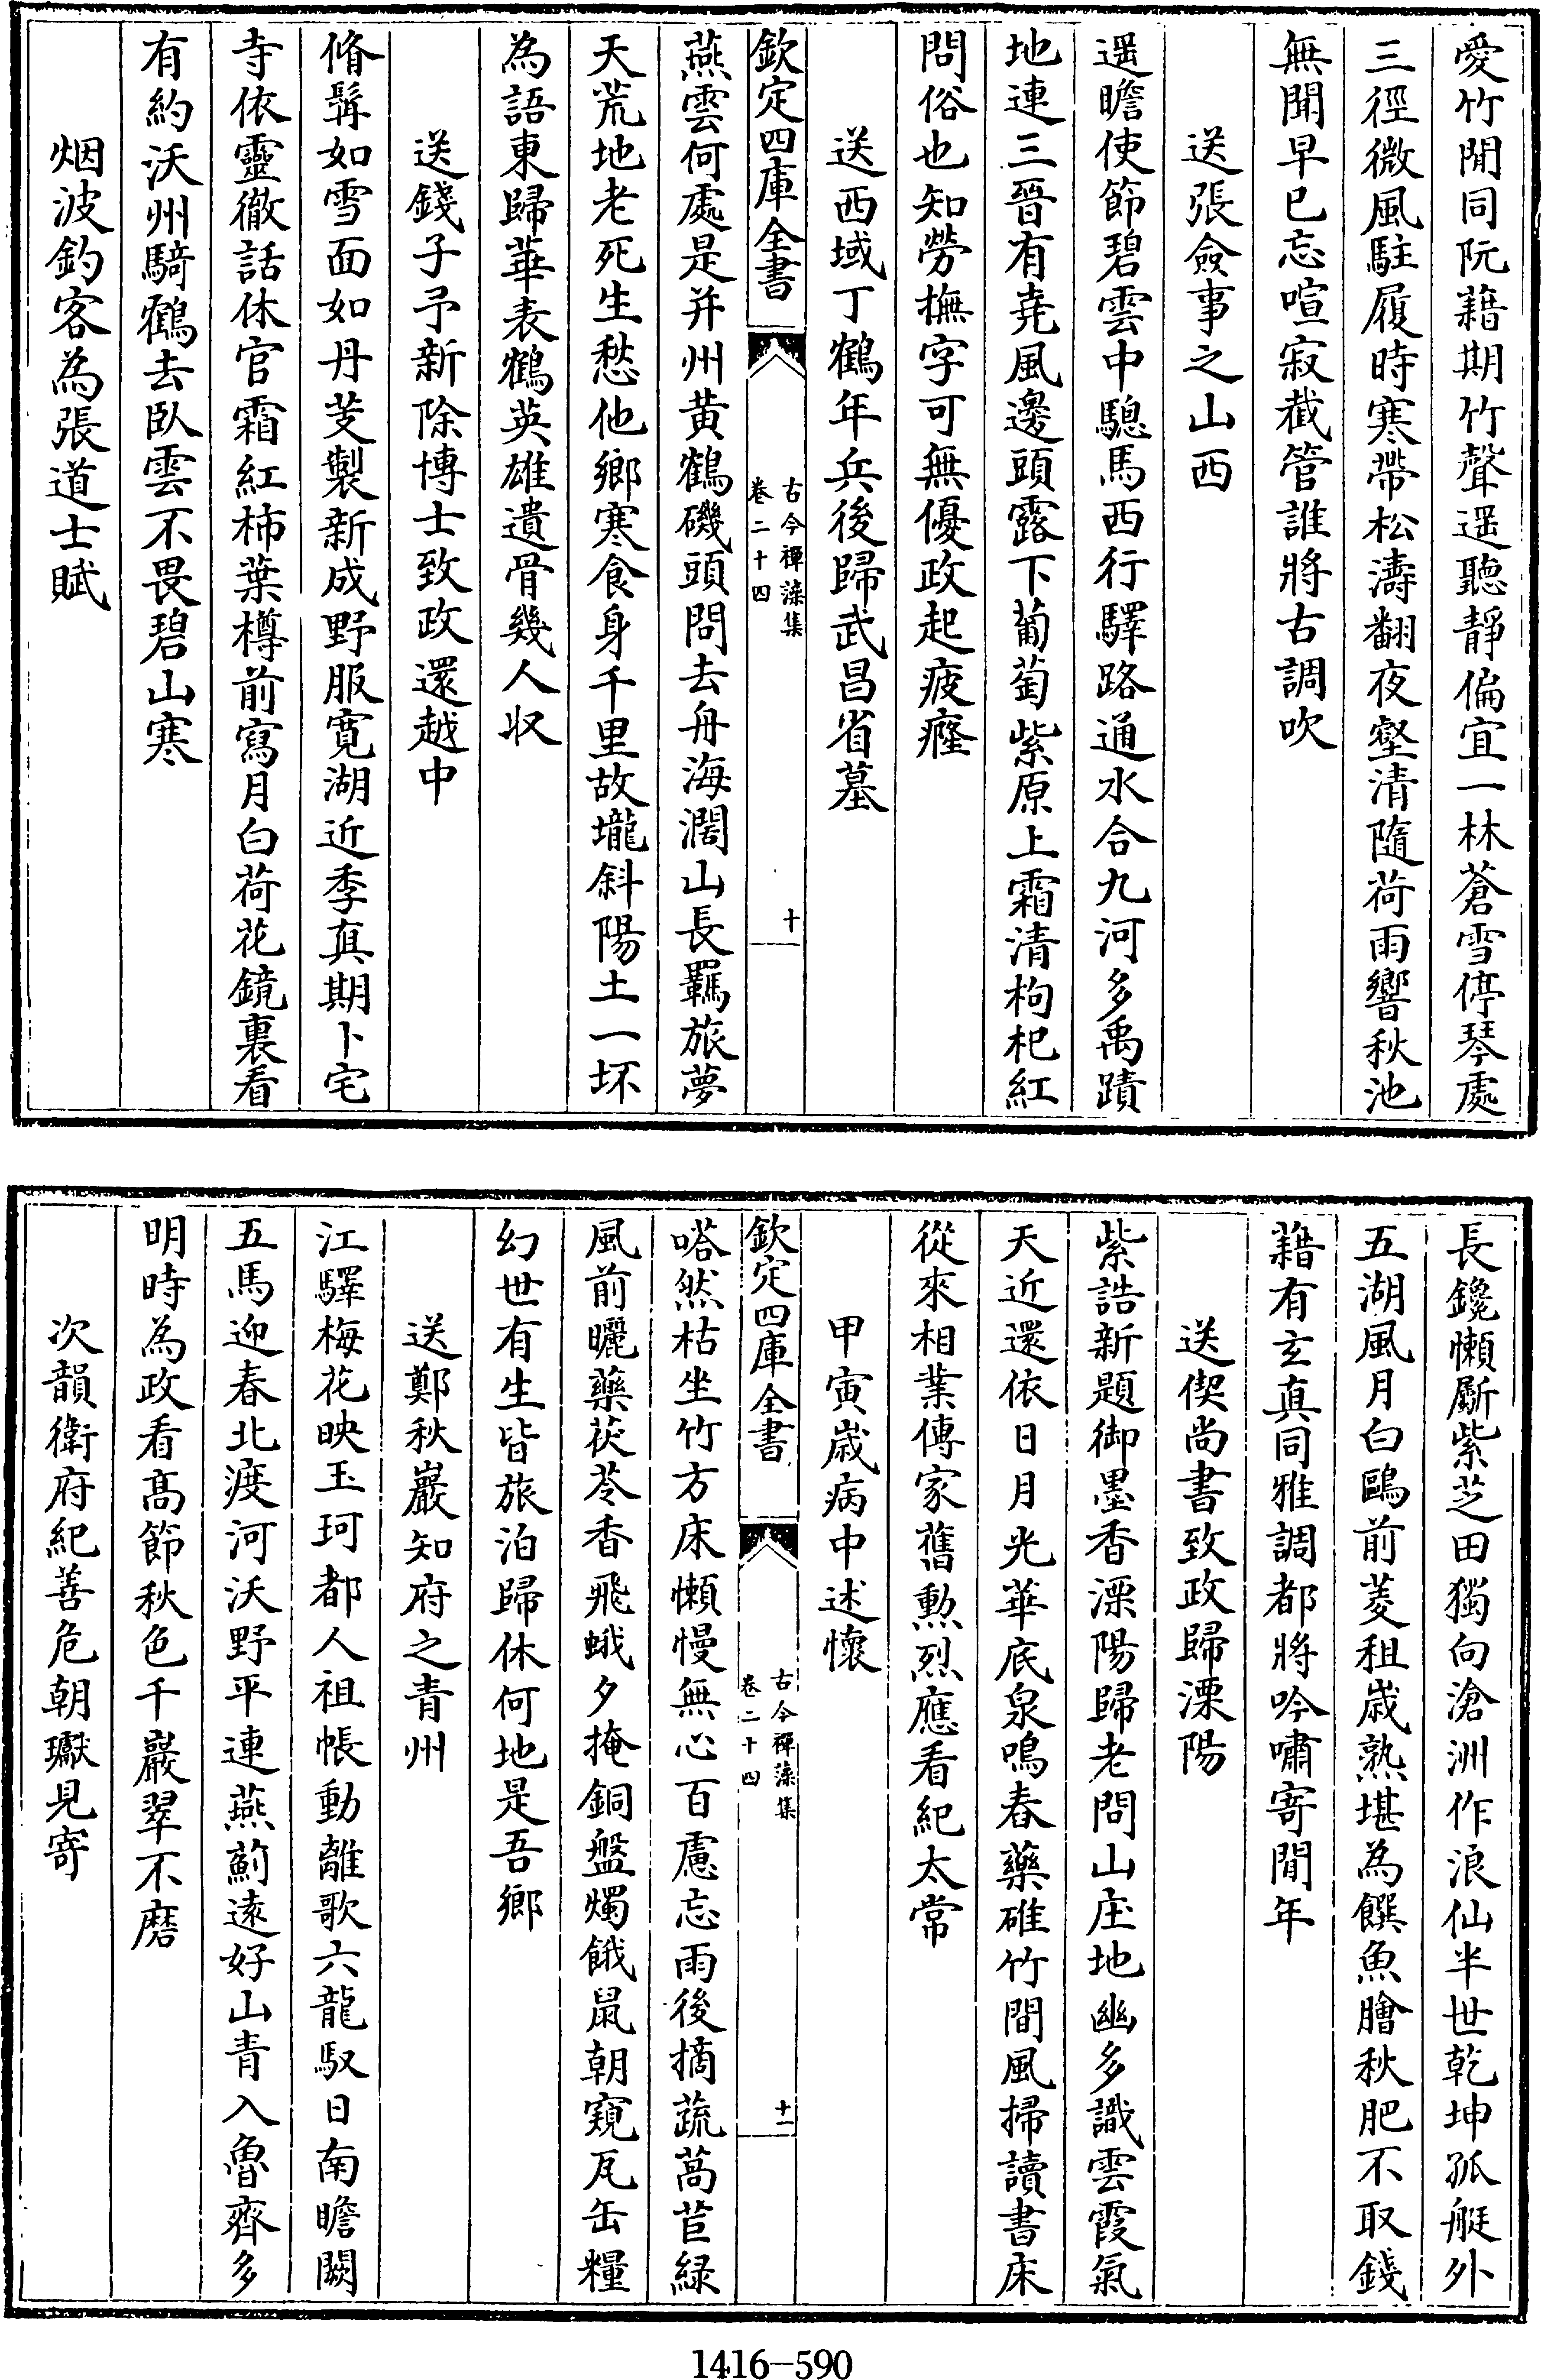 愛竹閒同阮藉期竹聲遥聽靜偏宜一林蒼雪停琴處
三徑微風駐履時寒帶松濤翻夜壑清隨荷雨響秋池
無聞早已忘喧寂截管誰將古調吹
送張僉事之山西
遥瞻使節碧雲中驄馬西行驛路通水合九河多禹蹟
地連三晉有堯風邊頭露下葡萄紫原上霜清枸杞紅
問俗也知勞撫字可無優政起疲癃
送西域丁鶴年兵後歸武昌省墓
欽定四庫全書
古今禪藻集
卷二十四
十
燕雲何處是并州黄鶴磯頭問去舟海濶山長羈旅夢
天荒地老死生愁他鄉寒食身千里故壠斜陽土一抔
為語東歸華表鶴英雄遺骨幾人收
送錢子予新除博士致政還越中
脩髯如雪面如丹芰製新成野服寛湖近季真期卜宅
寺依靈徹話休官霜紅柿葉樽前寫月白荷花鏡裏看
有約沃州騎鶴去臥雲不畏碧山寒
烟波釣客為張道士賦
長鑱懶斸紫芝田獨向滄洲作浪仙半世乾坤孤艇外
五湖風月白鷗前菱租歲熟堪為饌魚膾秋肥不取錢
藉有玄真同雅調都將吟嘯寄閒年
送偰尚書致政歸溧陽
紫誥新題御墨香溧陽歸老問山庄地幽多識雲霞氣
天近還依日月光華底泉鳴春藥碓竹間風掃讀書床
從來相業傳家舊勲烈應看紀太常
甲寅歲病中述懷
欽定四庫全書
古今禪藻集
卷二十四
十一
嗒然枯坐竹方床懶慢無心百慮忘雨後摘蔬萵苣緑
風前曬藥茯苓香飛蛾夕掩銅盤燭餓鼠朝窺瓦缶糧
幻世有生皆旅泊歸休何地是吾鄉
送鄭秋巖知府之青州
江驛梅花映玉珂都人祖帳動離歌六龍馭日南瞻闕
五馬迎春北渡河沃野平連燕薊遠好山青入魯齊多
明時為政看髙節秋色千巖翠不磨
次韻衛府紀善危朝瓛見寄
1416-590